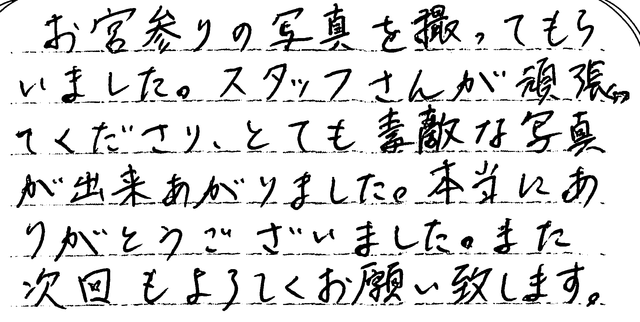 お宮参りの写真を撮ってもら
いました。スタッフさんが頑張っ
てくださり、とても素敵な写真
が出来あがりました。本当にあ
りがとうございました。また
次回もよろしくお願い致します。